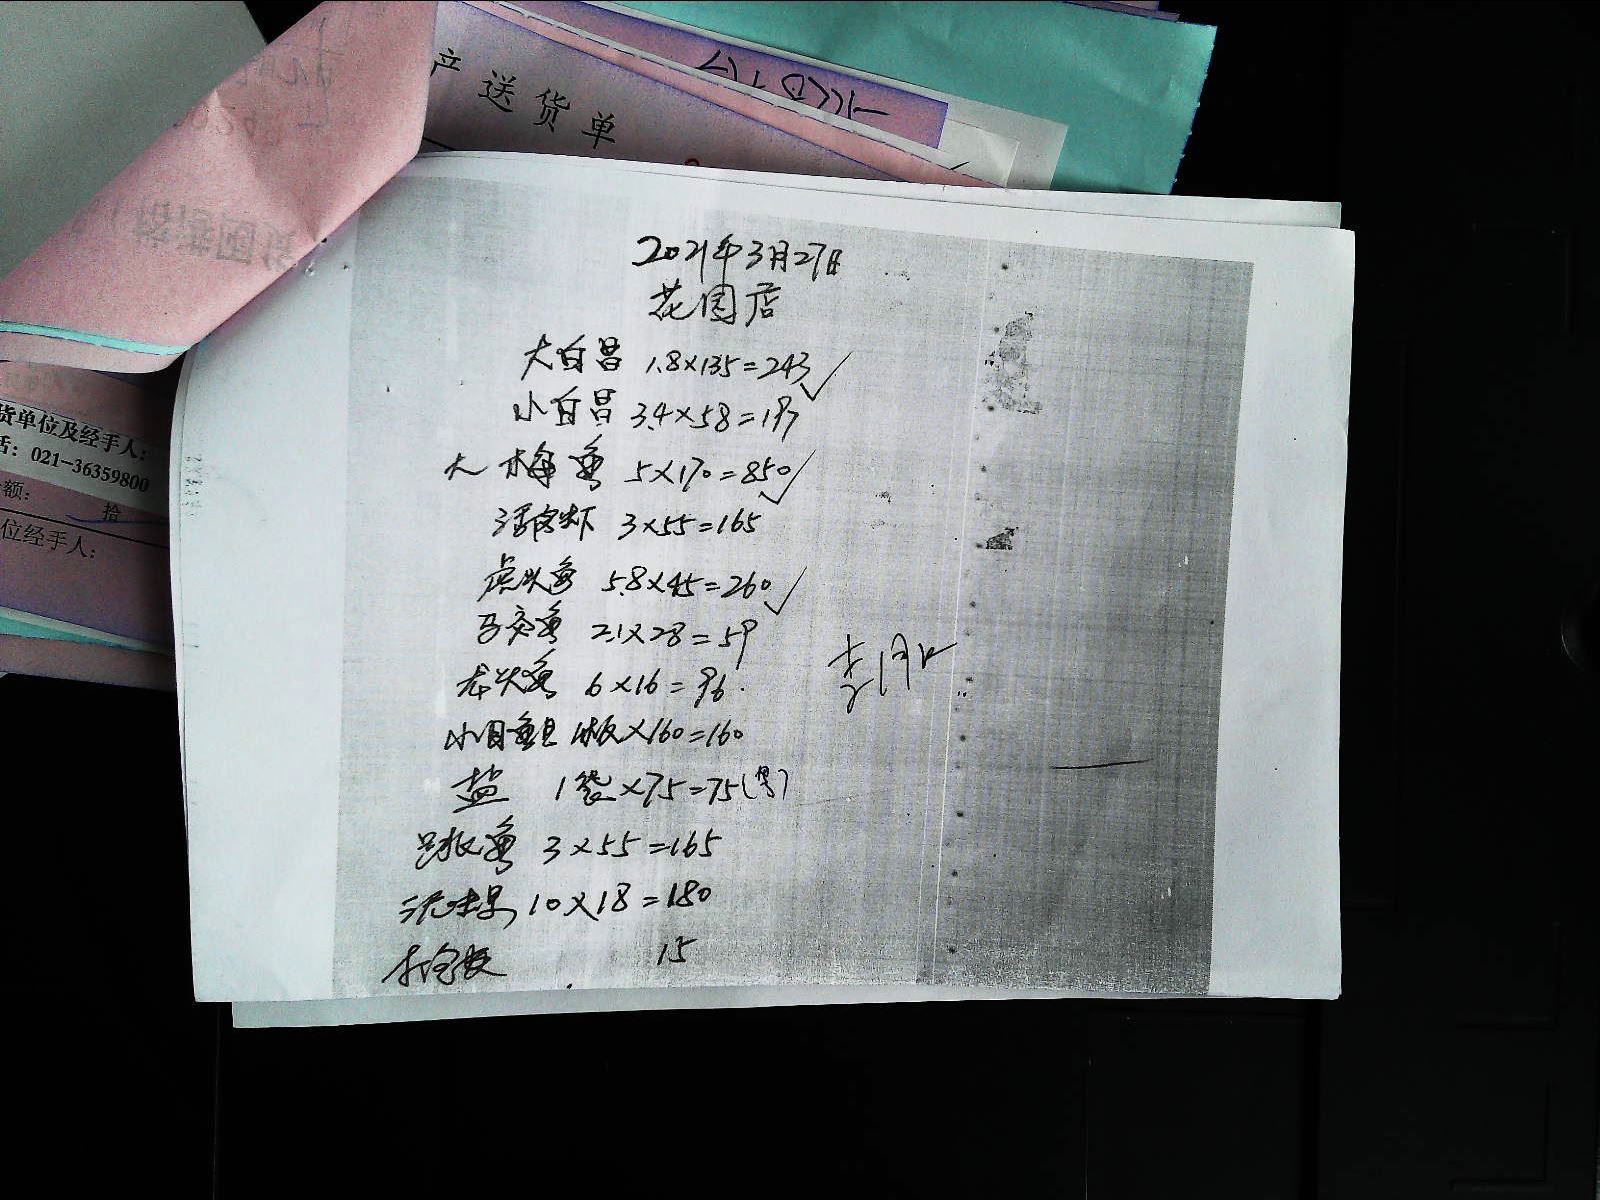 产送货单
货单位及经手人:
话: 021-36359800
额:
拾
位经手人:
2021年3月27日
花园店
大白昌 1.8×135=243✓
小白昌 3.4×58=197
大梅鱼 5×170=850✓
活白虾 3×55=165
虎头鱼 5.8×45=260✓
马交鱼 2.1×28=59
龙头鱼 6×16=96.
小目鱼旦 1板×160=160
盐 1袋×75=75
鱼 3×55=165
泥 10×18=180
15